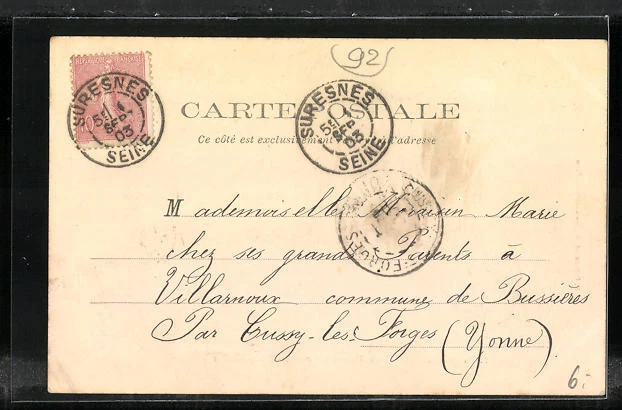 92
REPUBLIQUE FRANÇAISE
10
SURESNES
5E
SEP
03
SEINE
SURESNES
5E
SEP
03
SEINE
CARTE POSTALE
Ce côté est exclusivement à l'adresse
CUSSY
FORGES
Mademoiselle Marie
chez ses grands Parents à
Villarnoux commune de Bussières
Par Cussy-les-Forges (Yonne)
6.-